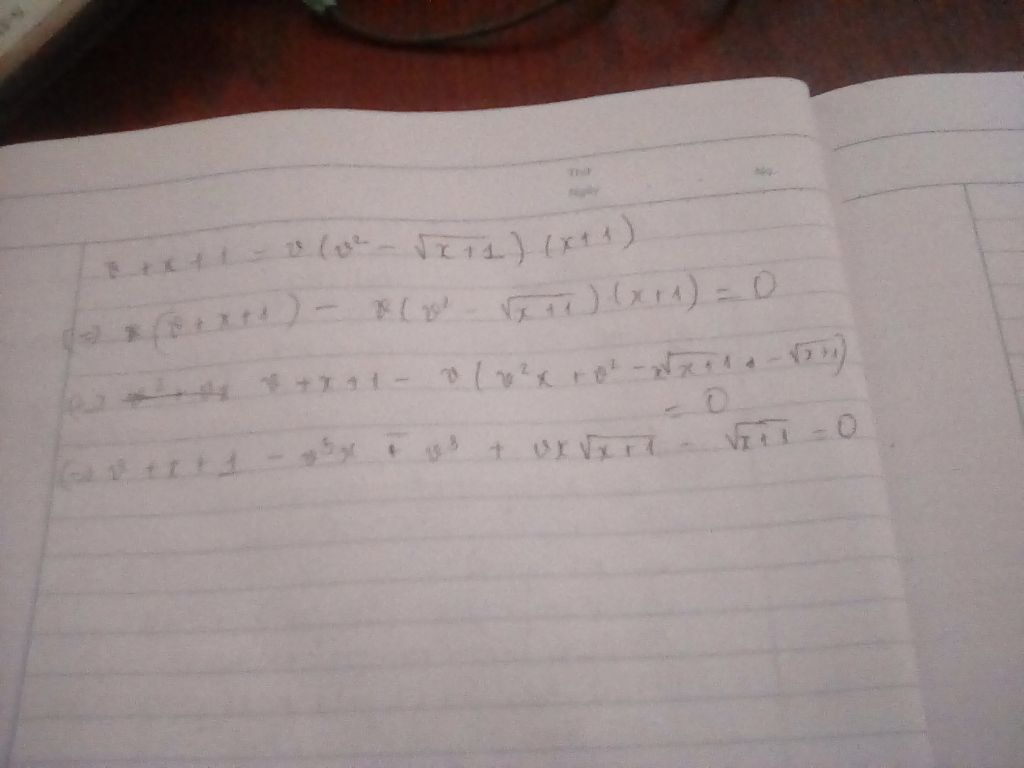 Thứ
Ngày
No.
v + x + 1 = v(v² - √(x+1))(x+1)
(=) v(v + x + 1) - v(v² - √(x+1))(x+1) = 0
(=) v + x + 1 - v(v²x + v² - x√(x+1) - √(x+1))
= 0
(=) v + x + 1 - v³x - v³ + vx√(x+1) - √(x+1) = 0